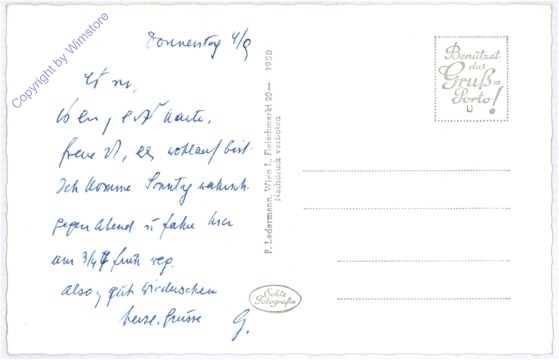 Copyright by Wimstore
Donnerstag 4/9
Karte,
freue, wohlauf bist.
Ich komme Sonntag wahrsch.
gegen Abend fahre hier
um 3/4 früh weg.
also, gut wiedersehen
herzl. Grüsse G.
P. Ledermann, Wien I., Fleischmarkt 20— 1953
Nachdruck verboten
Benützet
das
Gruß=
Porto!
Echte
Fotografie